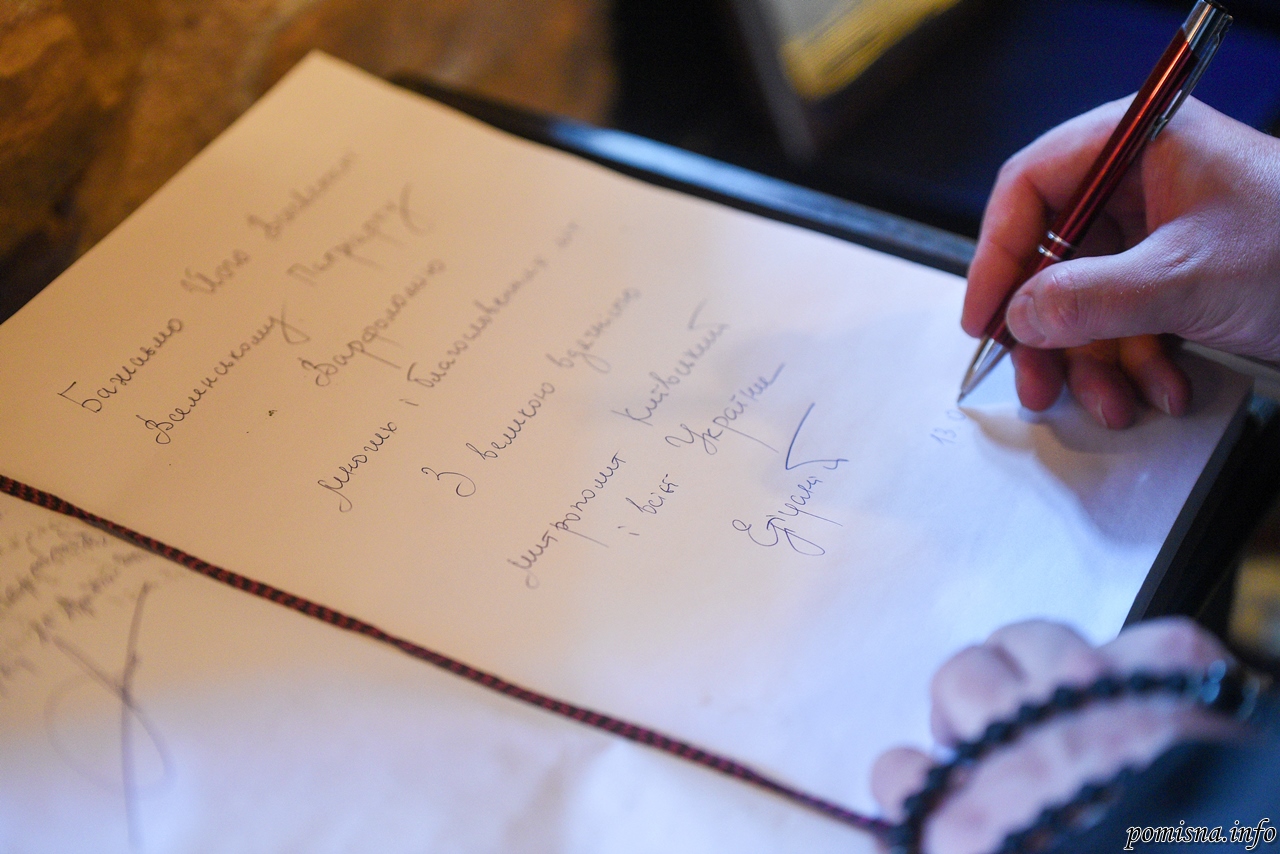 Бажаємо Його Святості
Вселенському Патріарху
Варфоломію
многих і благословенних літ
З великою вдячністю
митрополит Київський
і всієї України
Епіфаній
13.
pomisna.info